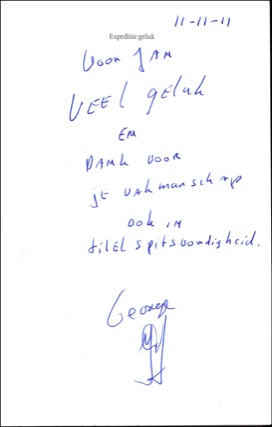 11-11-11
Expeditie geluk
Voor JAN
VEEL geluk
EN
DANK VOOR
je vakmanschap
ook in
titel spitsvondigheid.
George